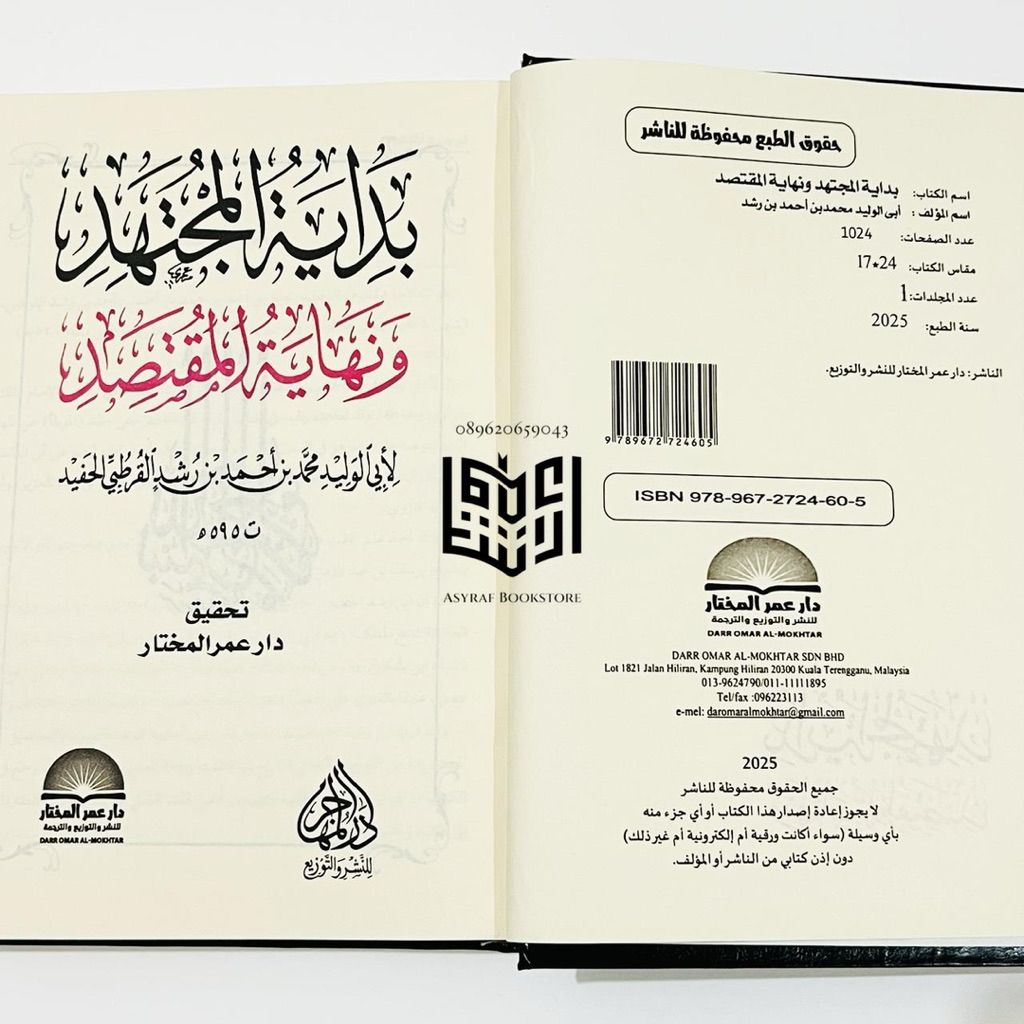 بَدَايَةُ المُجْتَهِدِ
وَنَهَايَةُ المُقْتَصِدِ
لِأَبِي الوَلِيدِ مُحَمَّد بن أَحْمَد بن رُشْدٍ القُرطُبِيِّ الحَفِيدِ
ت ٥٩٥ه
تحقيق
دار عمر المختار
دار عمر المختار
للنشر والتوزيع والترجمة
DARR OMAR AL-MOKHTAR
دار المهاجر
للنَّشْرِ والتَّوْزِيع
089620659043
ASYRAF BOOKSTORE
حقوق الطبع محفوظة للناشر
اسم الكتاب: بداية المجتهد ونهاية المقتصد
اسم المؤلف: أبي الوليد محمد بن أحمد بن رشد
عدد الصفحات: 1024
مقاس الكتاب: 24*17
عدد المجلدات: 1
سنة الطبع: 2025
الناشر: دار عمر المختار للنشر والتوزيع.
9 789672 724605
ISBN 978-967-2724-60-5
دار عمر المختار
للنشر والتوزيع والترجمة
DARR OMAR AL-MOKHTAR
DARR OMAR AL-MOKHTAR SDN BHD
Lot 1821 Jalan Hiliran, Kampung Hiliran 20300 Kuala Terengganu, Malaysia
013-9624790/011-11111895
Tel/fax :096223113
e-mel: daromaralmokhtar@gmail.com
2025
جميع الحقوق محفوظة للناشر
لا يجوز إعادة إصدار هذا الكتاب أو أي جزء منه
بأي وسيلة (سواء أكانت ورقية أم إلكترونية أم غير ذلك)
دون إذن كتابي من الناشر أو المؤلف.